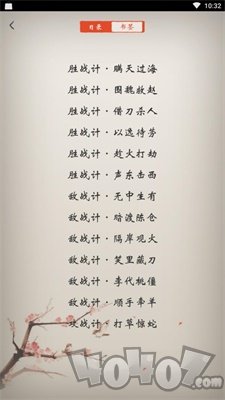 10:32
目录 书签
胜战计·瞒天过海
胜战计·围魏救赵
胜战计·借刀杀人
胜战计·以逸待劳
胜战计·趁火打劫
胜战计·声东击西
敌战计·无中生有
敌战计·暗渡陈仓
敌战计·隔岸观火
敌战计·笑里藏刀
敌战计·李代桃僵
敌战计·顺手牵羊
攻战计·打草惊蛇